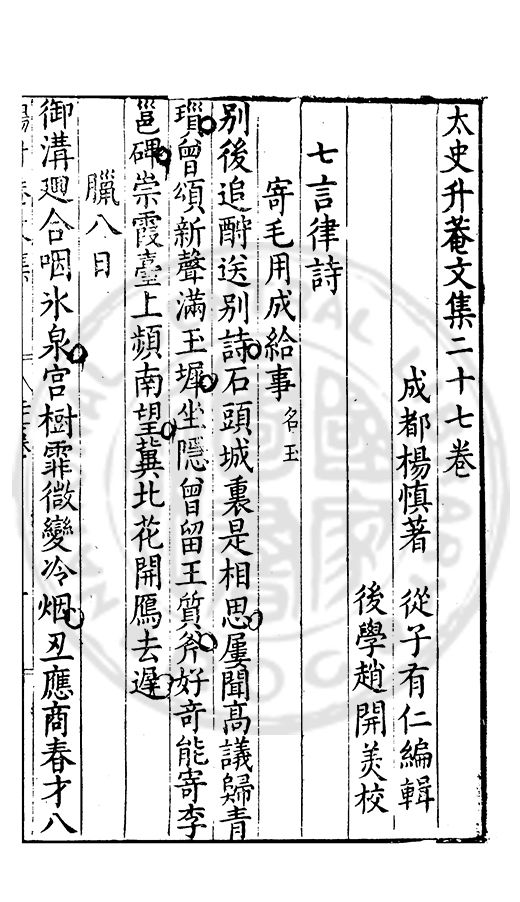 太史升菴文集二十七卷
成都楊慎著　從子有仁編輯
後學趙開美校
七言律詩
寄毛用成給事名玉
別後追酧送别詩石頭城裏是相思屢聞高議歸青
瑣曾頌新聲滿玉墀坐隱曾留王質斧好竒能寄李
邕碑崇霞臺上頻南望冀北花開鴈去遲
臘八日
御溝廻合咽氷泉宫樹霏微變冷烟丑應商春才八